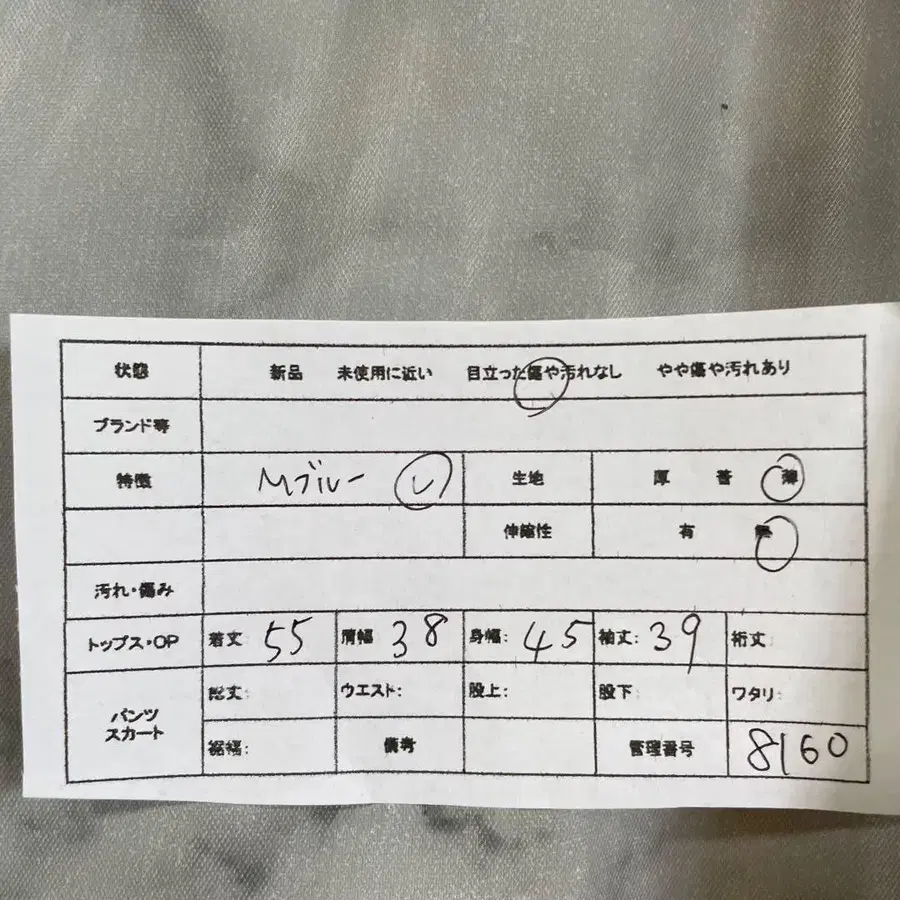 状態 新品 未使用に近い 目立った傷や汚れなし やや傷や汚れあり
ブランド等
特徴 Mブルー レ 生地 厚 普 薄
伸縮性 有 無
汚れ・傷み
トップス・OP 着丈 55 肩幅 38 身幅: 45 袖丈: 39 裄丈
パンツ スカート 総丈: ウエスト: 股上: 股下: ワタリ:
裾幅: 備考 管理番号 8160